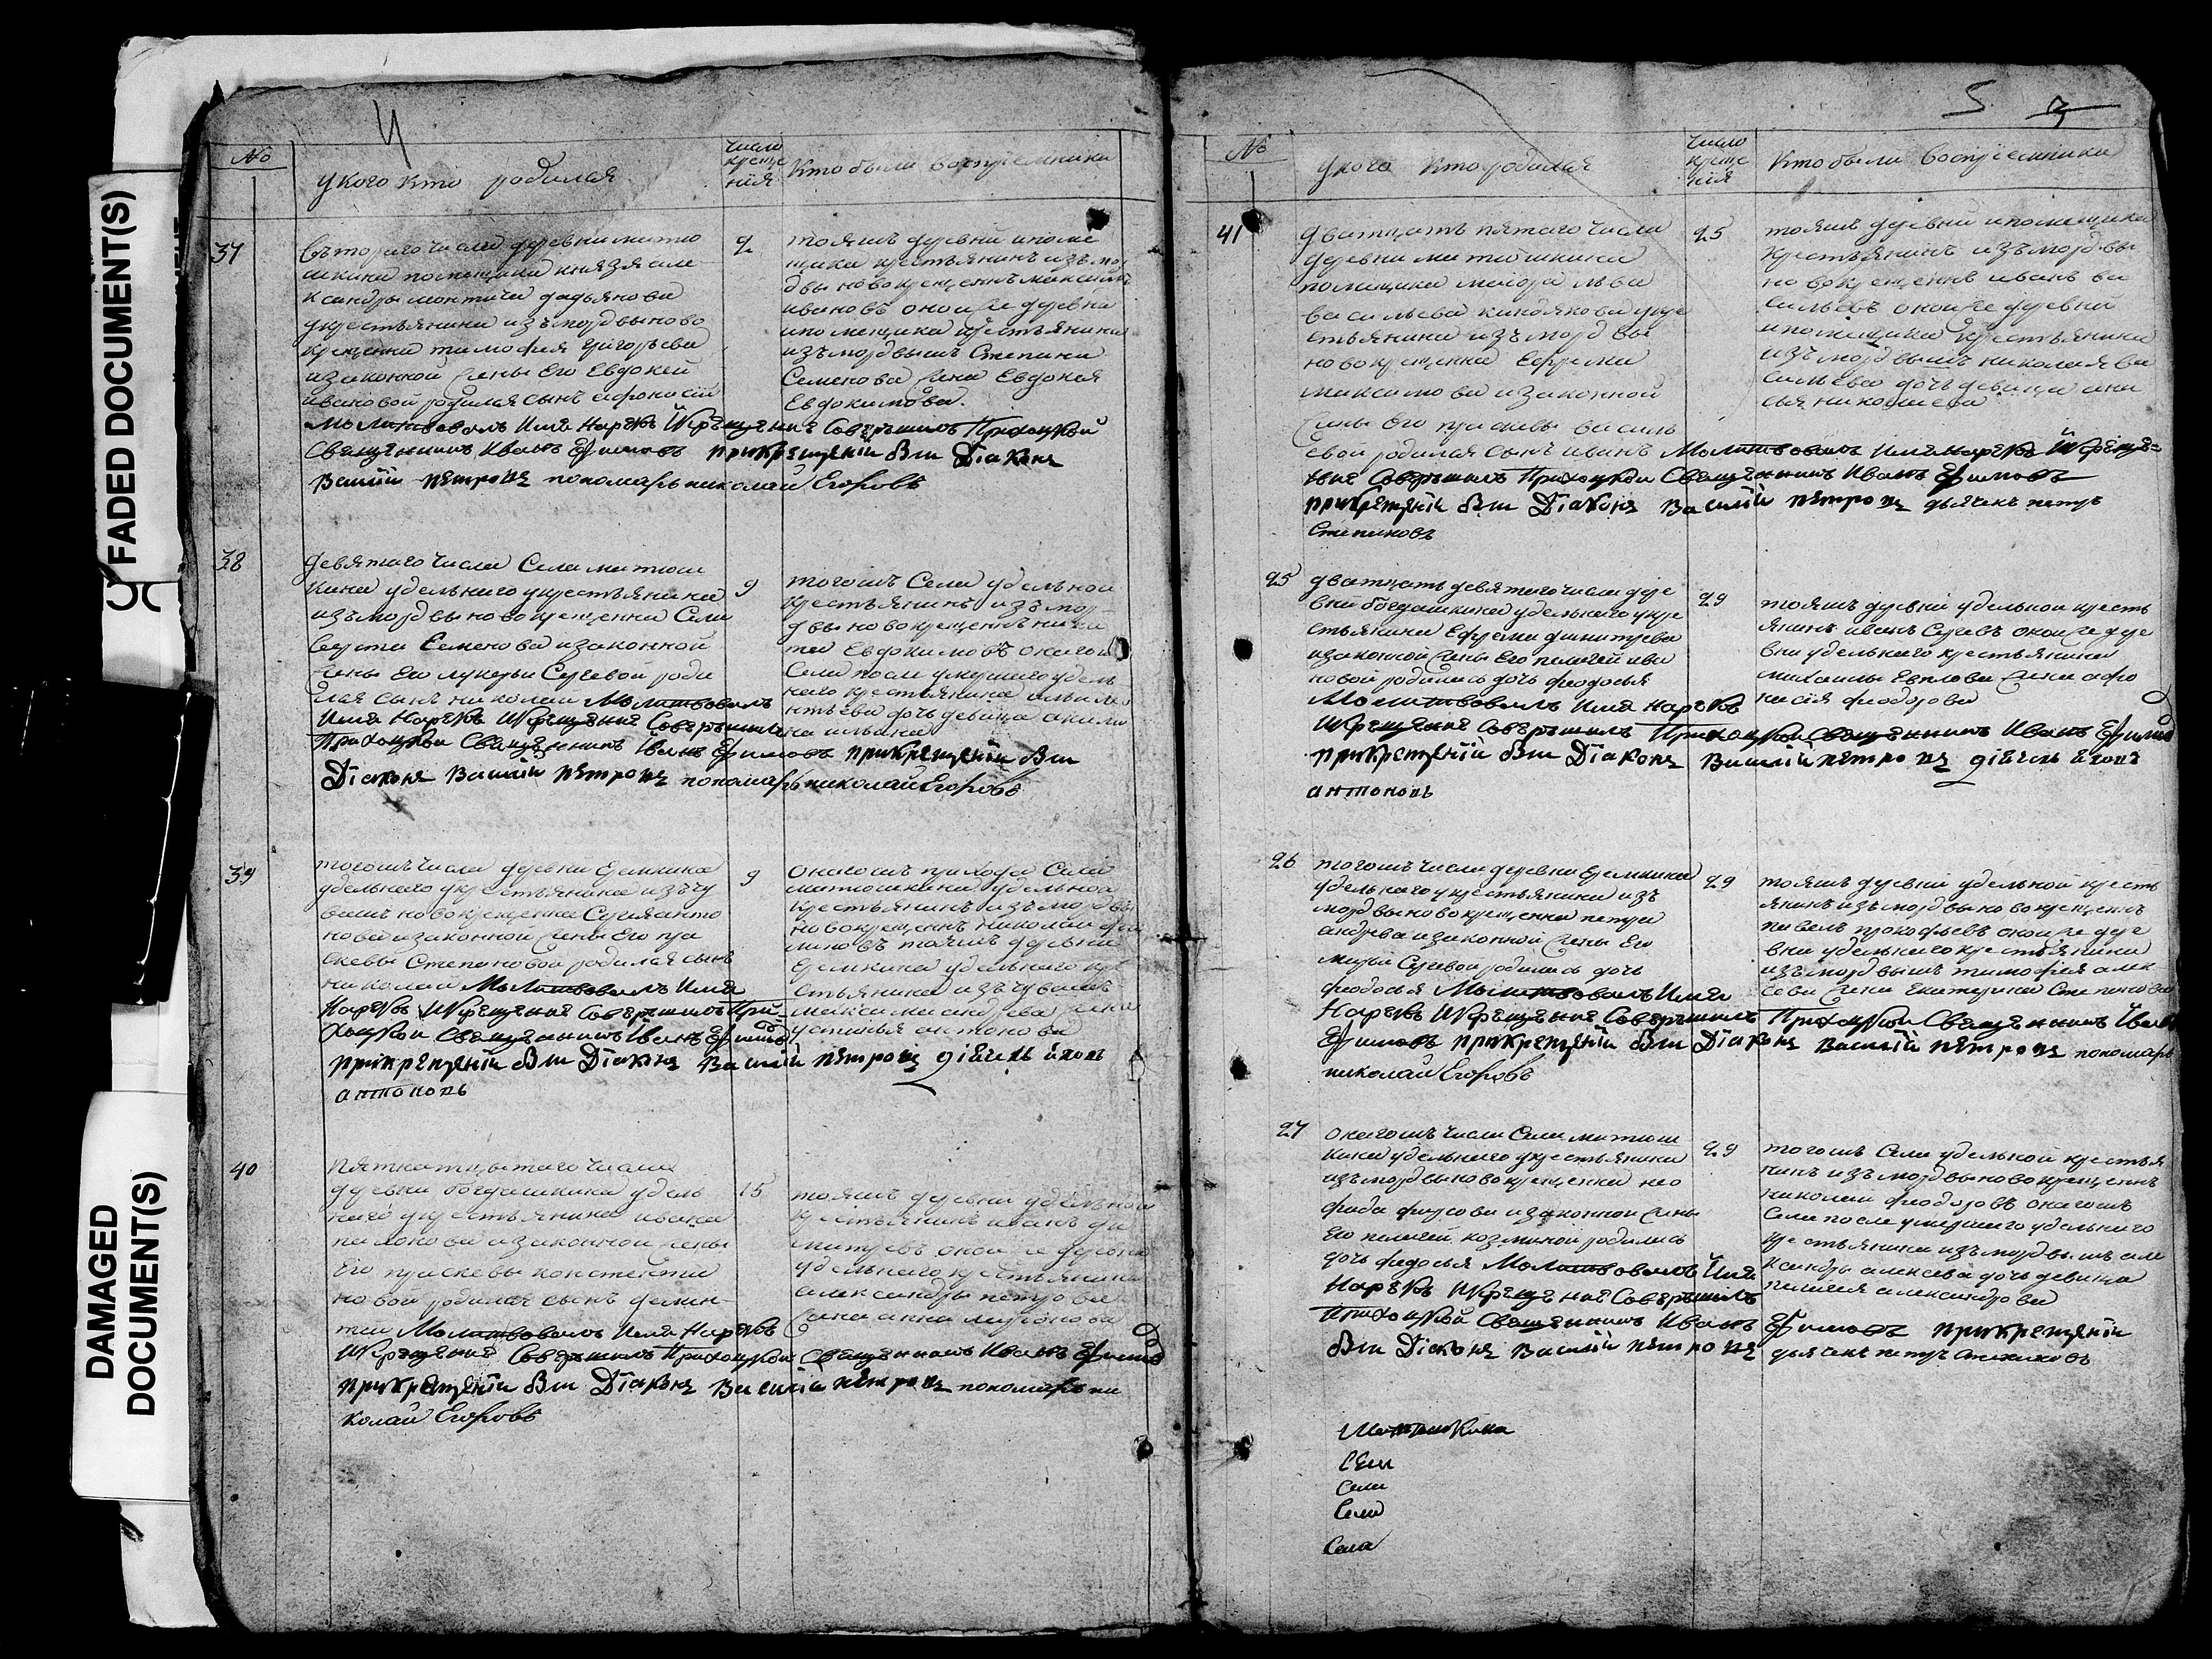 FADED DOCUMENT(S)
DAMAGED
DOCUMENT(S)
4
№
у кого кто родился
число
креще
нія
кто были восприемники
37
вътораго числа деревни митю
шкина помещика князя але
ксандры леонтича дадьянова
укрестьянина изъ мордвы ново
крещенна тимофея григорьева
изаконной жены его Евдокеи
ивановой родился сынъ афонасіи
Молитвовалъ имя Нарекъ Икрещение Совершилъ Приходкой
Священникъ Иванъ Ефимовъ прикрещеніи были Діаконъ
Василіи Петровъ пономарь николаи Егоровъ
2
тояжъ деревни ипоме
щика крестьянинъ изъ мор
двы новокрещеннъ максимъ
ивановъ оноиже деревни
ипомещика крестьянина
изъ мордвышъ Степана
Семенова жена Евдокея
Евдокимова.
38
девятаго числа Села митюш
кина удельнаго укрестьянина
изъ мордвы новокрещенна Сели
верста Семенова изаконной
жены Его лукерьи Сергевой роди
лся сынъ николаи Молитвовалъ
имя Нарекъ Икрещение Совершилъ
Приходкои Священникъ Иванъ Ефимовъ прикрещеніи были
Діаконъ Василіи Петровъ пономарь николаи Егоровъ
9
тогошъ Села удельнои
крестьянинъ изъ мор
двы новокрещеннъ ники
та Евдокимовъ онагошъ
Села после умершаго удель
наго крестьянина
дочь девица акили
на
39
тогошъ числа деревни Еремкина
удельнаго укрестьянина изъ чу
вашъ новокрещенна Сергея анто
нова изаконной жены Его пра
сковьи Степановой родился сынъ
николаи Молитвовалъ имя
Нарекъ Икрещение Совершилъ При
ходкои Священникъ Иванъ Ефимовъ
прикрещеніи были Діаконъ Василіи Петровъ
антоновъ
9
онагошъ прихода Села
митюшкина удельнои
крестьянинъ изъ мордвы
новокрещеннъ николаи
тояжъ деревни
Еремкина удельнаго кре
стьянина изъ чувашъ
жена
устинья антонова
40
пятнатцытаго числа
деревни богдашкина удель
наго укрестьянина ивана
изаконнои жены
Его прасковьи констенти
новои родился сынъ
Молитвовалъ имя Нарекъ
Икрещение Совершилъ Приходкои Священникъ Иванъ Ефимовъ
прикрещеніи были Діаконъ Василіи Петровъ пономарь ни
колаи Егоровъ
15
тояжъ деревни удельнои
крестьянинъ иванъ ди
митревъ оноиже деревни
удельнаго крестьянина
александры петрова
жена анна миронова
5
№
у кого кто родился
число
креще
нія
кто были восприемники
41
дватцать пятаго числа
деревни митюшкина
помещика маиора льва
васильева киндякова укре
стьянина изъ мордвы
новокрещенна Ефрема
максимова изаконной
жены Его прасковьи василь
евой родился сынъ иванъ Молитвовалъ имя нарекъ Икреще=
ние Совершилъ Приходкои Священникъ Иванъ Ефимовъ
прикрещеніи были Діаконъ Василіи Петровъ дьячекъ петръ
Степановъ
25
тояшъ деревни ипомещика
крестьянинъ изъ мордвы
новокрещеннъ иванъ ва
сильевъ оноиже деревни
ипомещика крестьянина
изъ мордвышъ николая ва
сильева дочь девица
николаева
25
дватцать девятого числа дере
вни богдашкина удельнаго укре
стьянина Ефрема димитрева
изаконной жены Его пелагеи ива
новой родилась дочь феодосья
Молитвовалъ имя Нарекъ
Икрещение Совершилъ Приходкои Священникъ Иванъ Ефимовъ
прикрещеніи были Діаконъ Василіи Петровъ
антоновъ
29
тояшъ деревни удельнои кресть
янинъ иванъ Сергевъ оноиже дере
вни удельнаго крестьянина
михаилы жена афо
насія феодорова
26
тогошъ числа деревни Еремкина
удельнаго укрестьянина изъ
мордвы новокрещенна петра
андрева изаконной жены Его
марьи Сергевой родилась дочь
феодосья Молитвовалъ имя
Нарекъ Икрещение Совершилъ Приходкои Священникъ Иванъ
Ефимовъ прикрещеніи были Діаконъ Василіи Петровъ пономарь
николаи Егоровъ
29
тояшъ деревни удельнои кресть
янинъ изъ мордвы новокрещеннъ
павелъ прокофьевъ оноиже дере
вни удельнаго крестьянина
изъ мордвышъ тимофея алек
сева жена Екатерина Степанова
27
онагошъ числа Села митюш
кина удельнаго укрестьянина
изъ мордвы новокрещенна нео
фида фирсова изаконнои жены
Его пелагеи козминой родилась
дочь федосья Молитвовалъ имя
Нарекъ Икрещение Совершилъ
Приходкои Священникъ Иванъ Ефимовъ прикрещеніи
были Діаконъ Василіи Петровъ дьячекъ петръ Степановъ
29
тогошъ Села удельной крестья
нинъ изъ мордвы новокрещеннъ
николаи феодоровъ онагошъ
Села после умершаго удельнаго
крестьянина изъ мордвышъ але
ксандры алексева дочь девица
пелагея александрова
Митюшкина
Села
Села
Села
Села